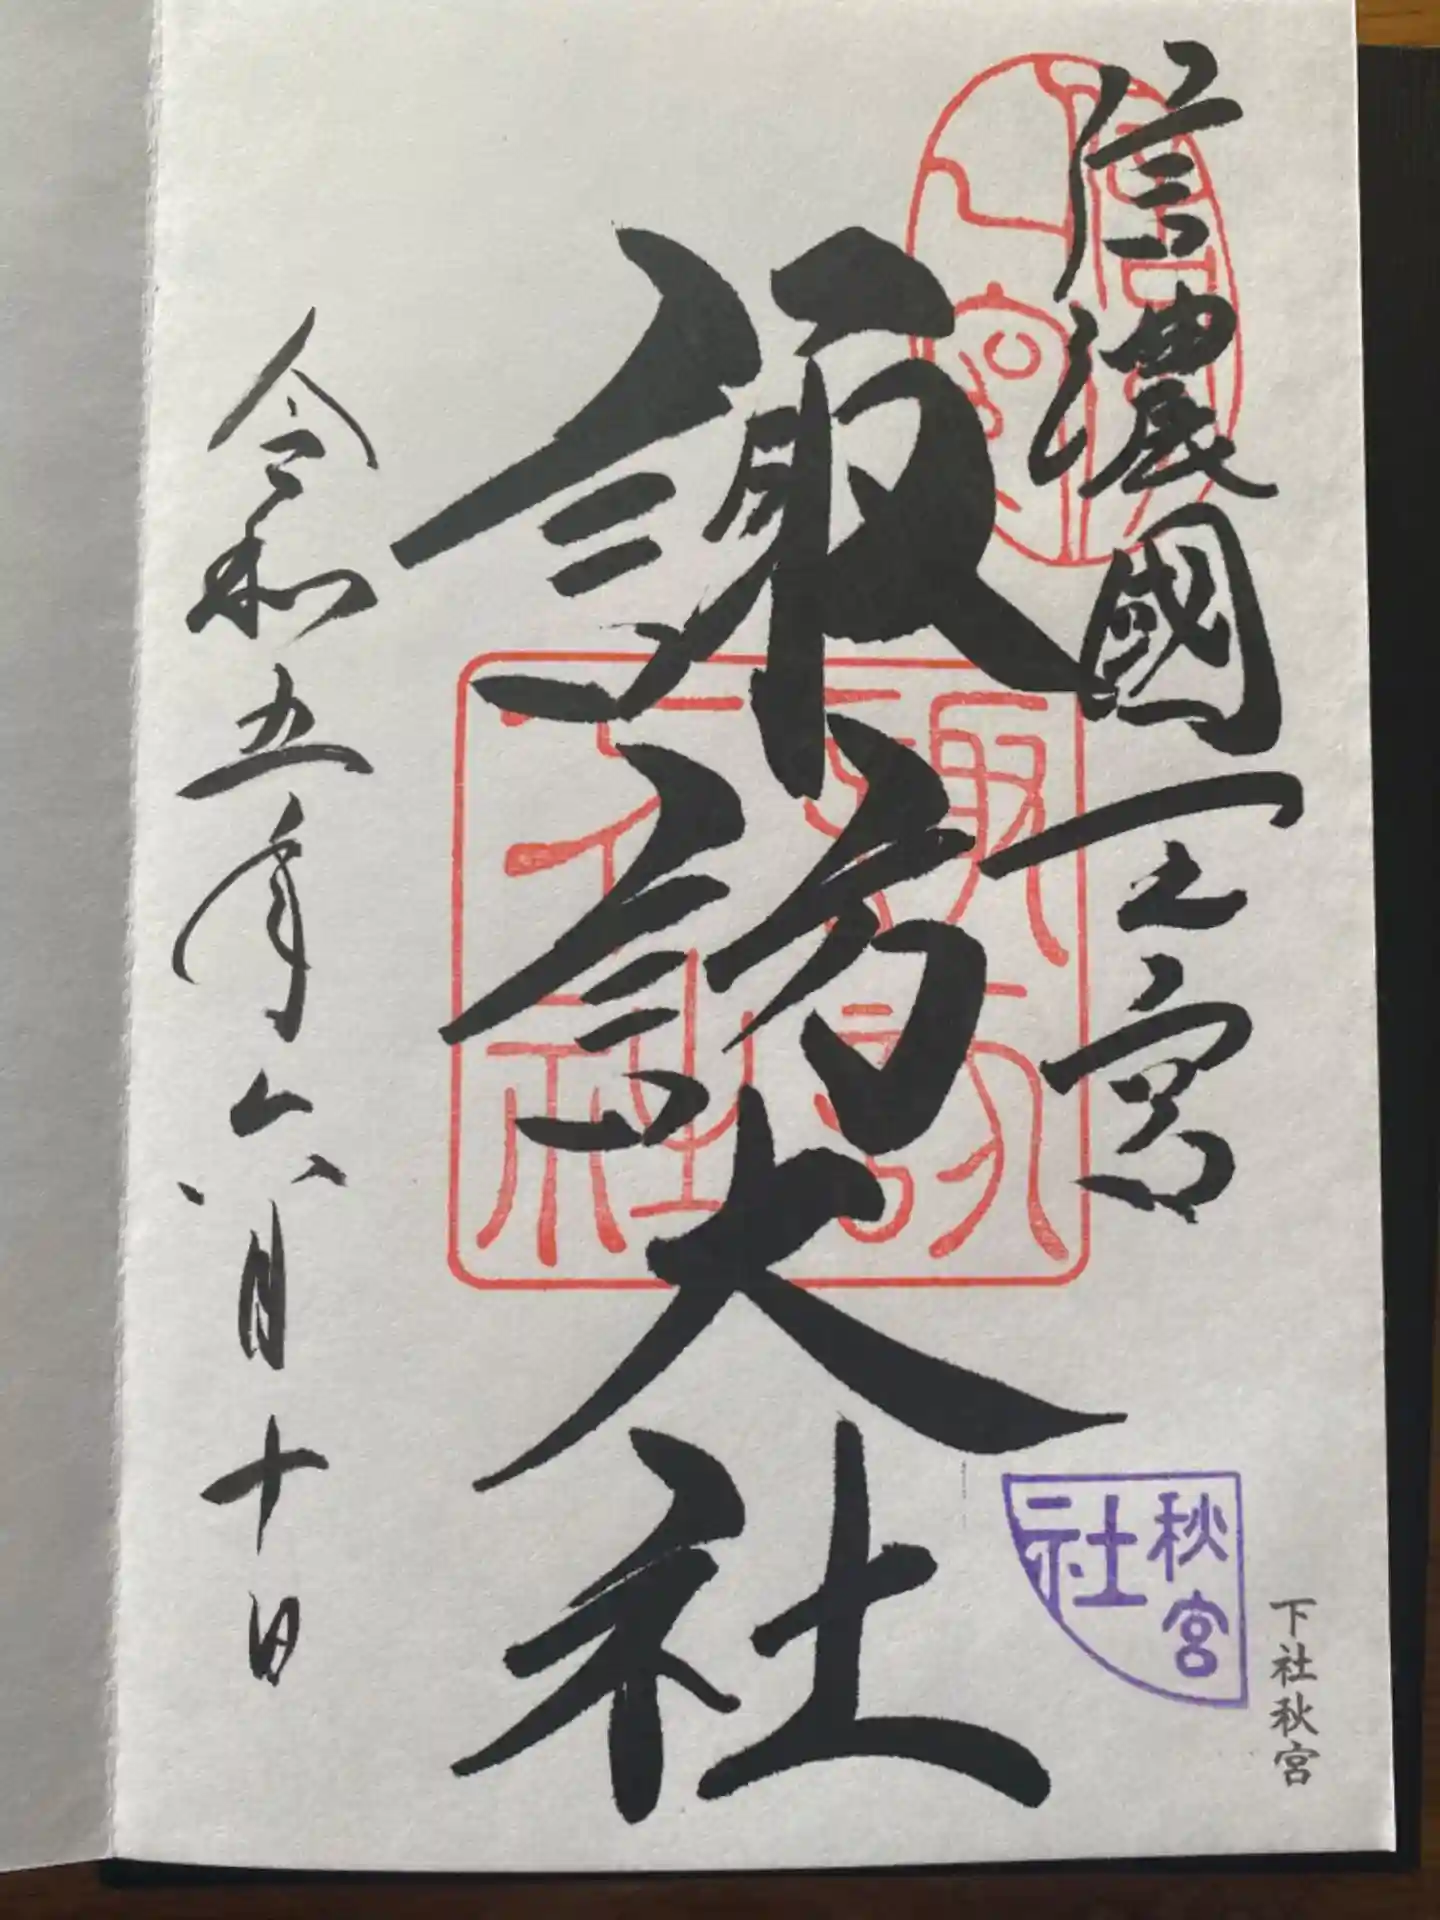 信濃國一之宮
諏訪大社
令和五年六月十日
諏訪
大社
秋宮
社
下社秋宮